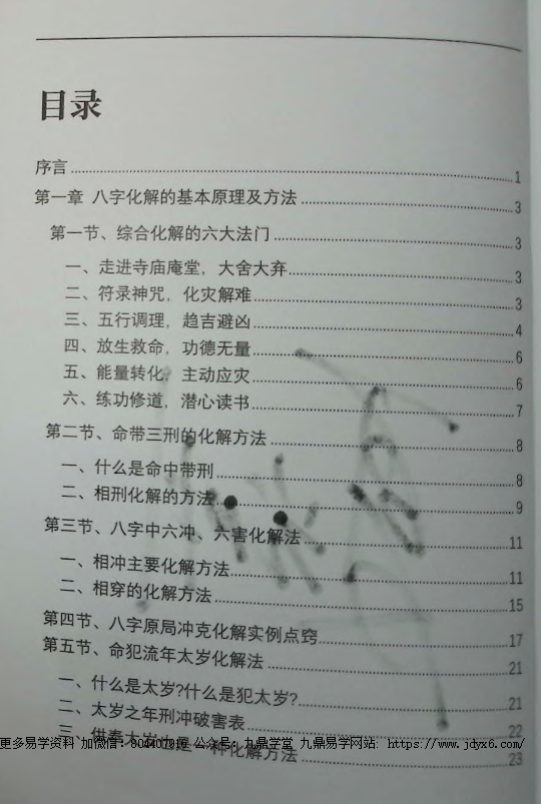 目录
序言 1
第一章 八字化解的基本原理及方法 3
第一节、综合化解的六大法门 3
一、走进寺庙庵堂，大舍大弃 3
二、符录神咒，化灾解难 3
三、五行调理，趋吉避凶 4
四、放生救命，功德无量 6
五、能量转化，主动应灾 6
六、练功修道，潜心读书 7
第二节、命带三刑的化解方法 8
一、什么是命中带刑 8
二、相刑化解的方法 9
第三节、八字中六冲、六害化解法 11
一、相冲主要化解方法 11
二、相穿的化解方法 15
第四节、八字原局冲克化解实例点窍 17
第五节、命犯流年太岁化解法 21
一、什么是太岁?什么是犯太岁? 21
二、太岁之年刑冲破害表 22
三、供奉太岁也是一种化解方法 23
更多易学资料 加微信: 公众号: 九鼎学堂 九鼎易学网站: https://www.jdyx6.com/